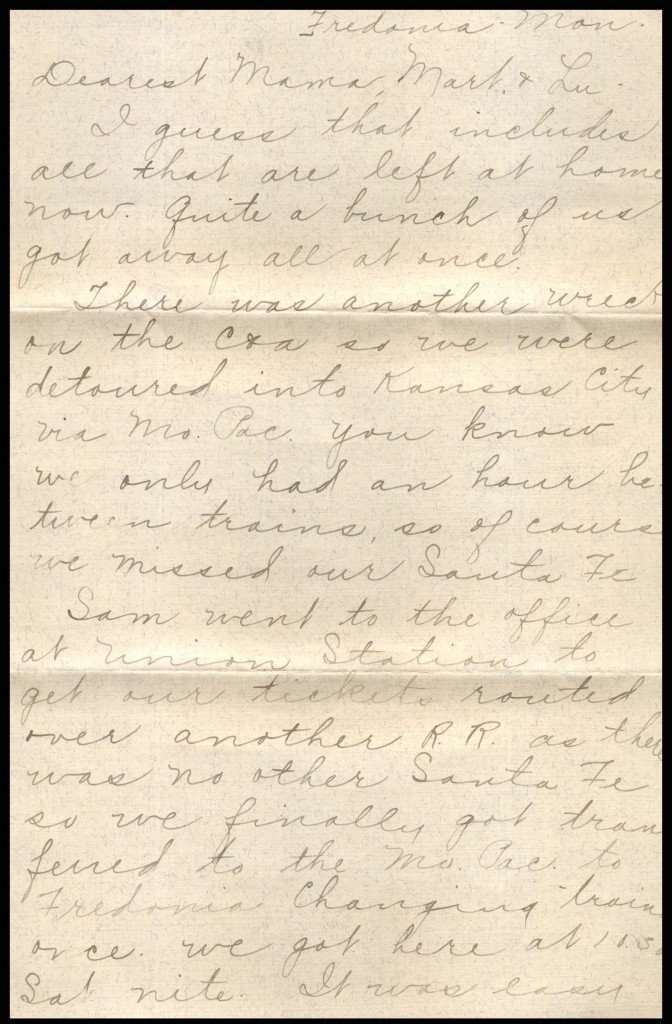 Fredonia - Mon.
Dearest Mama, Mart. & Lu -
I guess that includes
all that are left at home
now. Quite a bunch of us
got away all at once.
There was another wreck
on the C & A so we were
detoured into Kansas City
via Mo. Pac. you know
we only had an hour be-
tween trains, so of cours
we missed our Santa Fe
Sam went to the office
at Union Station to
get our tickets routed
over another R. R. as there
was no other Santa Fe
so we finally got tran
ferred to the Mo. Pac. to
Fredonia Changing train
once. we got here at
Sat nite. It was easy